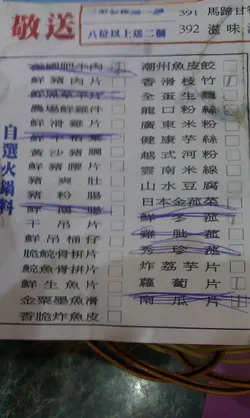 敬送
八位以上送二個
391 馬蹄甘
392 滋味
自選火鍋料
肥牛肉
鮮豬肉片
鮮鳳草羊片
農場鮮雞件
鮮滑雞片
鮮牛栢葉
黃沙豬膶
鮮豬腰片
豬爽肚
豬粉腸
鮮鴨腸
干吊片
鮮吊桶仔
脆鯇骨拼片
鯇魚骨拼片
鮮生魚片
金粟墨魚滑
香脆炸魚皮
潮州魚皮餃
香滑枝竹
全蛋生麵
龍口粉絲
廣東米粉
健康芋絲
越式河粉
雲南米線
山水豆腐
日本金菇菜
鮮冬菇
雞肶菇
秀珍菇
炸荔芋片
蘿蔔片
南瓜片